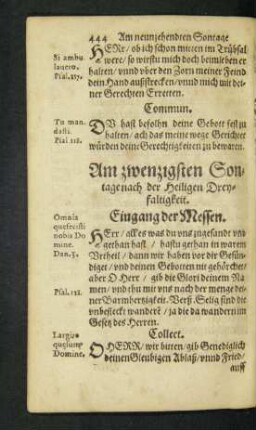 444 Am neunzehendten Sontage
Si ambu
lauero.
Psal.137.
HERr/ ob ich schon mitten im Trübsal
were/ so wirstu mich doch beimleben er
halten/ vnnd vber den Zorn meiner Feind
dein Hand außstrecken/ vnnd mich mit dei-
ner Gerechten Erretten.
Commun.
Tu man
dasti.
Psal 118.
DV hast befolhn deine Gebott fest zu
halten/ ach das meine wege Gerichtet
würden deine Gerechtigkeiten zu bewaren.
Am zwenzigsten Son-
tage nach der Heiligen Drey-
faltigkeit.
Eingang der Messen.
Omnia
quæ fecisti
nobis Do
mine.
Dan.3.
HErr/ alles was du vns zugefandt vnd
gethan hast/ hastu gethan in warem
Vrtheil/ dann wir haben vor dir Gesün-
diget/ vnd deinen Gebotten nit gehörchet/
aber O Herr/ gib die Glori deinem Na
men/ vnd thu mit vns nach der menge dei-
ner Barmhertzigkeit. Verß. Selig sind die
vnbefleckt wandern/ ja die da wandern im
Gesetz des Herren.
Psal.118.
Collect.
Largire
quæsumus
Domine.
O HERR/ wir bitten/ gib Genediglich
deinen Gleubigen Ablaß/ vnnd Fried/
auff